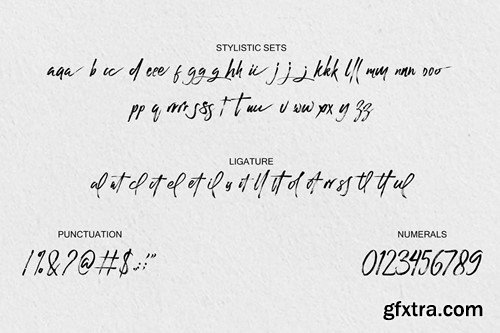 STYLISTIC SETS
aaa b cc d eee f ggg hh ii j j j kkk lll mm nnn ooo
pp q rrr sss t t uu v ww xx y zz
LIGATURE
al at cl ct el et il is it ll lt ol ot rr ss tl tt ul
PUNCTUATION
NUMERALS
!%&?@#$.,:;'"
0123456789
gfxtra.com